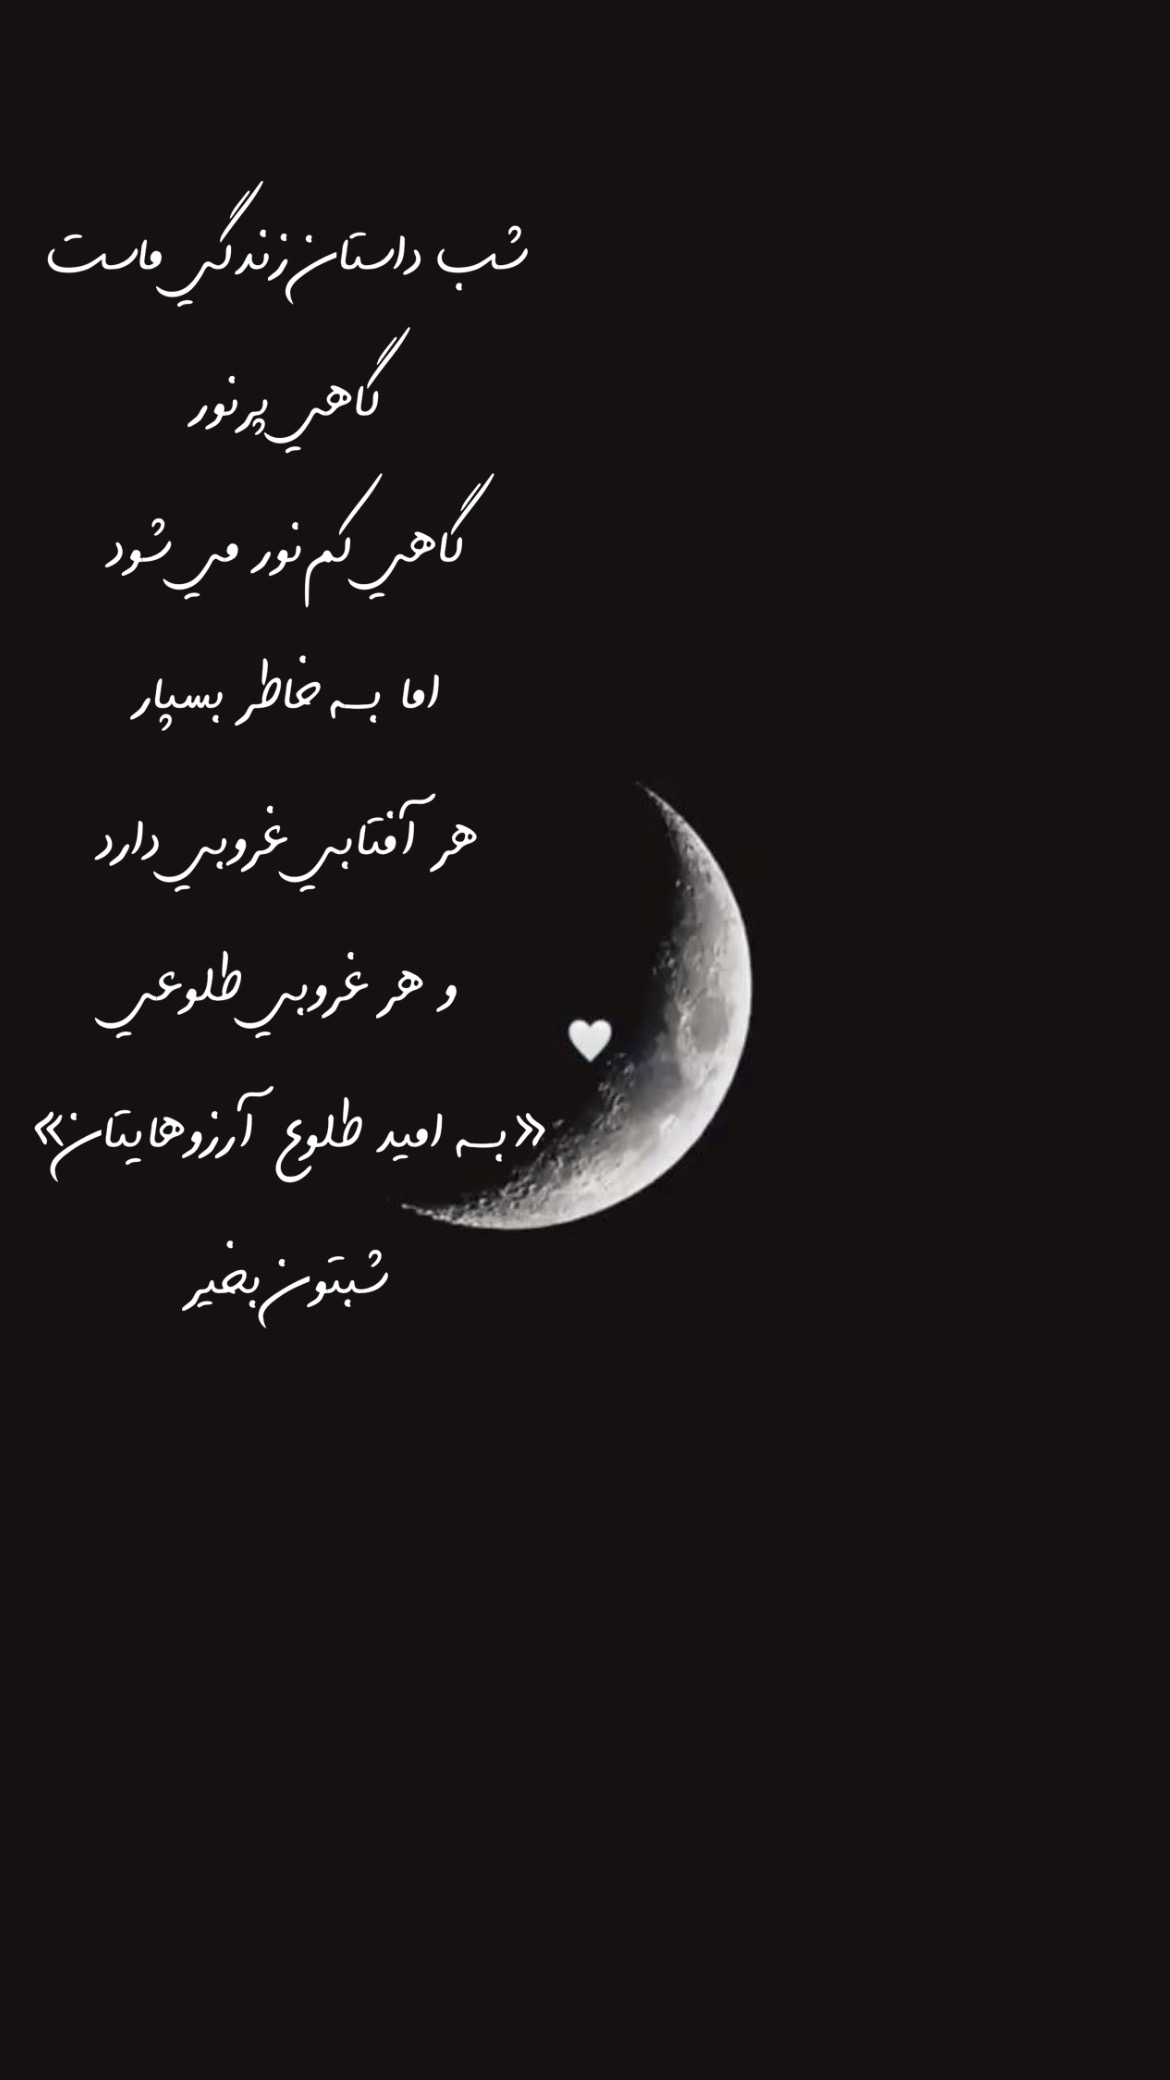 شب داستان زندگي ماست
گاهي پرنور
گاهي كم نور مي شود
اما به خاطر بسپار
هر آفتابي غروبي دارد
و هر غروبي طلوعي
«به اميد طلوع آرزوهايتان»
شبتون بخير